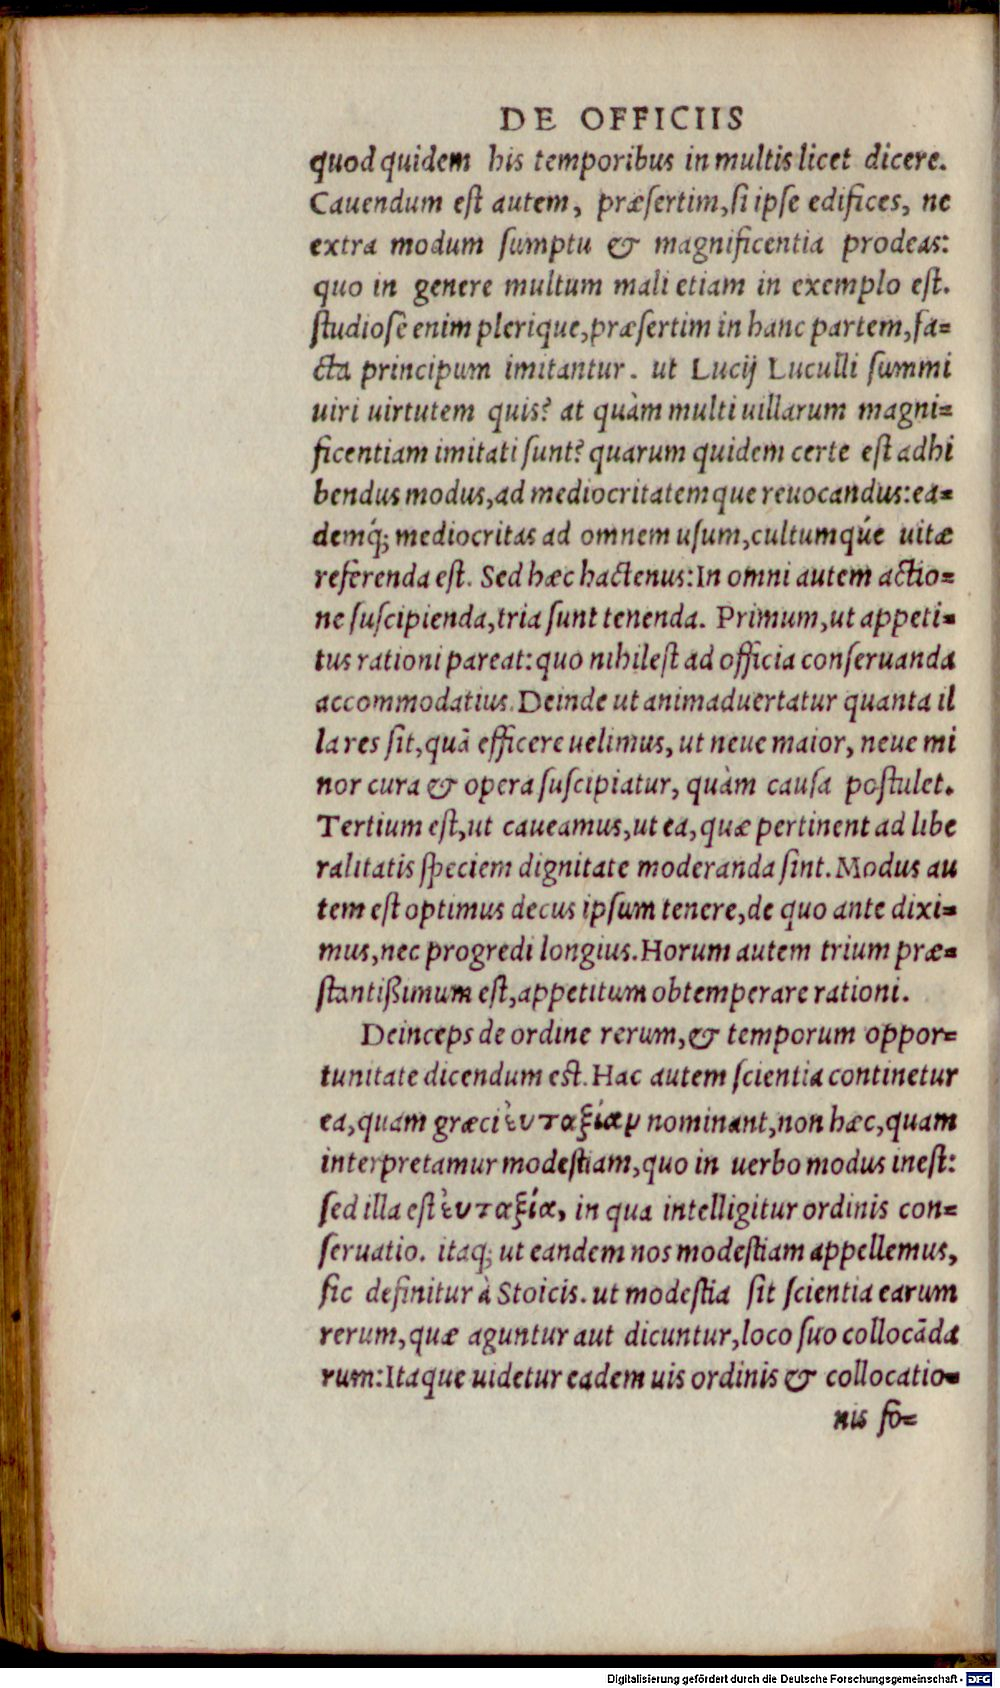 DE OFFICIIS
quod quidem his temporibus in multis licet dicere.
Cauendum est autem, præsertim, si ipse edifices, ne
extra modum sumptu & magnificentia prodeas:
quo in genere multum mali etiam in exemplo est.
studiosè enim plerique, præsertim in hanc partem, fa=
cta principum imitantur. ut Lucij Luculli summi
uiri uirtutem quis? at quàm multi uillarum magni=
ficentiam imitati sunt? quarum quidem certe est adhi
bendus modus, ad mediocritatemque reuocandus: ea=
demq́; mediocritas ad omnem usum, cultumqúe uitæ
referenda est. Sed hæc hactenus: In omni autem actio=
ne suscipienda, tria sunt tenenda. Primum, ut appeti=
tus rationi pareat: quo nihil est ad officia conseruanda
accommodatius. Deinde ut animaduertatur quanta il
la res sit, quā efficere uelimus, ut neue maior, neue mi
nor cura & opera suscipiatur, quàm causa postulet.
Tertium est, ut caueamus, ut ea, quæ pertinent ad libe
ralitatis speciem dignitate moderanda sint. Modus au
tem est optimus decus ipsum tenere, de quo ante dixi=
mus, nec progredi longius. Horum autem trium præ=
stantißimum est, appetitum obtemperare rationi.
Deinceps de ordine rerum, & temporum oppor=
tunitate dicendum est. Hac autem scientia continetur
ea, quam græci ἐυταξίαν nominant, non hæc, quam
interpretamur modestiam, quo in uerbo modus inest:
sed illa est ἐυταξία, in qua intelligitur ordinis con=
seruatio. itaq; ut eandem nos modestiam appellemus,
sic definitur à Stoicis. ut modestia sit scientia earum
rerum, quæ aguntur aut dicuntur, loco suo collocāda
rum: Itaque uidetur eadem uis ordinis & collocatio=
nis fo=
Digitalisierung gefördert durch die Deutsche Forschungsgemeinschaft - DFG